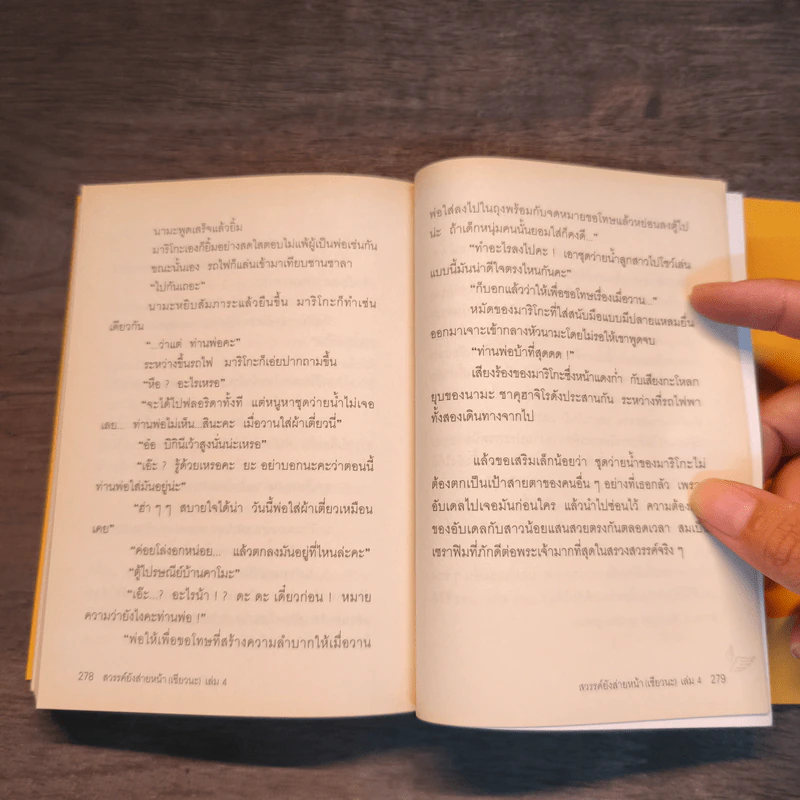 นามะพูดเสร็จแล้วยิ้ม
มาริโกะเองก็ยิ้มอย่างสดใสตอบไม่แพ้ผู้เป็นพ่อเช่นกัน
ขณะนั้นเอง รถไฟก็แล่นเข้ามาเทียบชานชาลา
“ไปกันเถอะ”
นามะหยิบสัมภาระแล้วยืนขึ้น มาริโกะก็ทำเช่น
เดียวกัน
“...ว่าแต่ ท่านพ่อคะ”
ระหว่างขึ้นรถไฟ มาริโกะก็เอ่ยปากถามขึ้น
“หือ ? อะไรเหรอ”
“จะได้ไปฟลอริดาทั้งที แต่หนูหาชุดว่ายน้ำไม่เจอ
เลย... ท่านพ่อไม่เห็น...สินะคะ เมื่อวานใส่ผ้าเตี่ยวนี่”
“อ๋อ บิกินีเว้าสูงนั่นน่ะเหรอ”
“เอ๊ะ ? รู้ด้วยเหรอคะ ยะ อย่าบอกนะคะว่าตอนนี้
ท่านพ่อใส่มันอยู่น่ะ”
“ฮ่า ๆ ๆ สบายใจได้น่า วันนี้พ่อใส่ผ้าเตี่ยวเหมือน
เคย”
“ค่อยโล่งอกหน่อย... แล้วตกลงมันอยู่ที่ไหนล่ะคะ”
“ตู้ไปรษณีย์บ้านคาโมะ”
“เอ๊ะ...? อะไรน้า ! ? ดะ ดะ เดี๋ยวก่อน ! หมาย
ความว่ายังไงคะท่านพ่อ !”
“พ่อให้เพื่อขอโทษที่สร้างความลำบากให้เมื่อวาน
278 สวรรค์ยังส่ายหน้า (เชียวนะ) เล่ม 4
พ่อใส่ลงไปในถุงพร้อมกับจดหมายขอโทษแล้วหย่อนลงตู้ไป
น่ะ ถ้าเด็กหนุ่มคนนั้นยอมใส่ก็คงดี...”
“ทำอะไรลงไปคะ ! เอาชุดว่ายน้ำลูกสาวไปโชว์เล่น
แบบนี้มันน่าดีใจตรงไหนกันคะ”
“ก็บอกแล้วว่าให้เพื่อขอโทษเรื่องเมื่อวาน...”
หมัดของมาริโกะที่ใส่สนับมือแบบมีปลายแหลมยื่น
ออกมาเจาะเข้ากลางหัวนามะโดยไม่รอให้เขาพูดจบ
“ท่านพ่อบ้าที่สุดดด !”
เสียงร้องของมาริโกะซึ่งหน้าแดงก่ำ กับเสียงกะโหลก
ยุบของนามะ ซาคุฮาจิโรดังประสานกัน ระหว่างที่รถไฟพา
ทั้งสองเดินทางจากไป
แล้วขอเสริมเล็กน้อยว่า ชุดว่ายน้ำของมาริโกะไม่
ต้องตกเป็นเป้าสายตาของคนอื่น ๆ อย่างที่เธอกลัว เพรา
อับเดลไปเจอมันก่อนใคร แล้วนำไปซ่อนไว้ ความต้อง
ของอับเดลกับสาวน้อยแสนสวยตรงกันตลอดเวลา สมเป็น
เซราฟิมที่ภักดีต่อพระเจ้ามากที่สุดในสรวงสวรรค์จริง ๆ
สวรรค์ยังส่ายหน้า (เชียวนะ) เล่ม 4 279